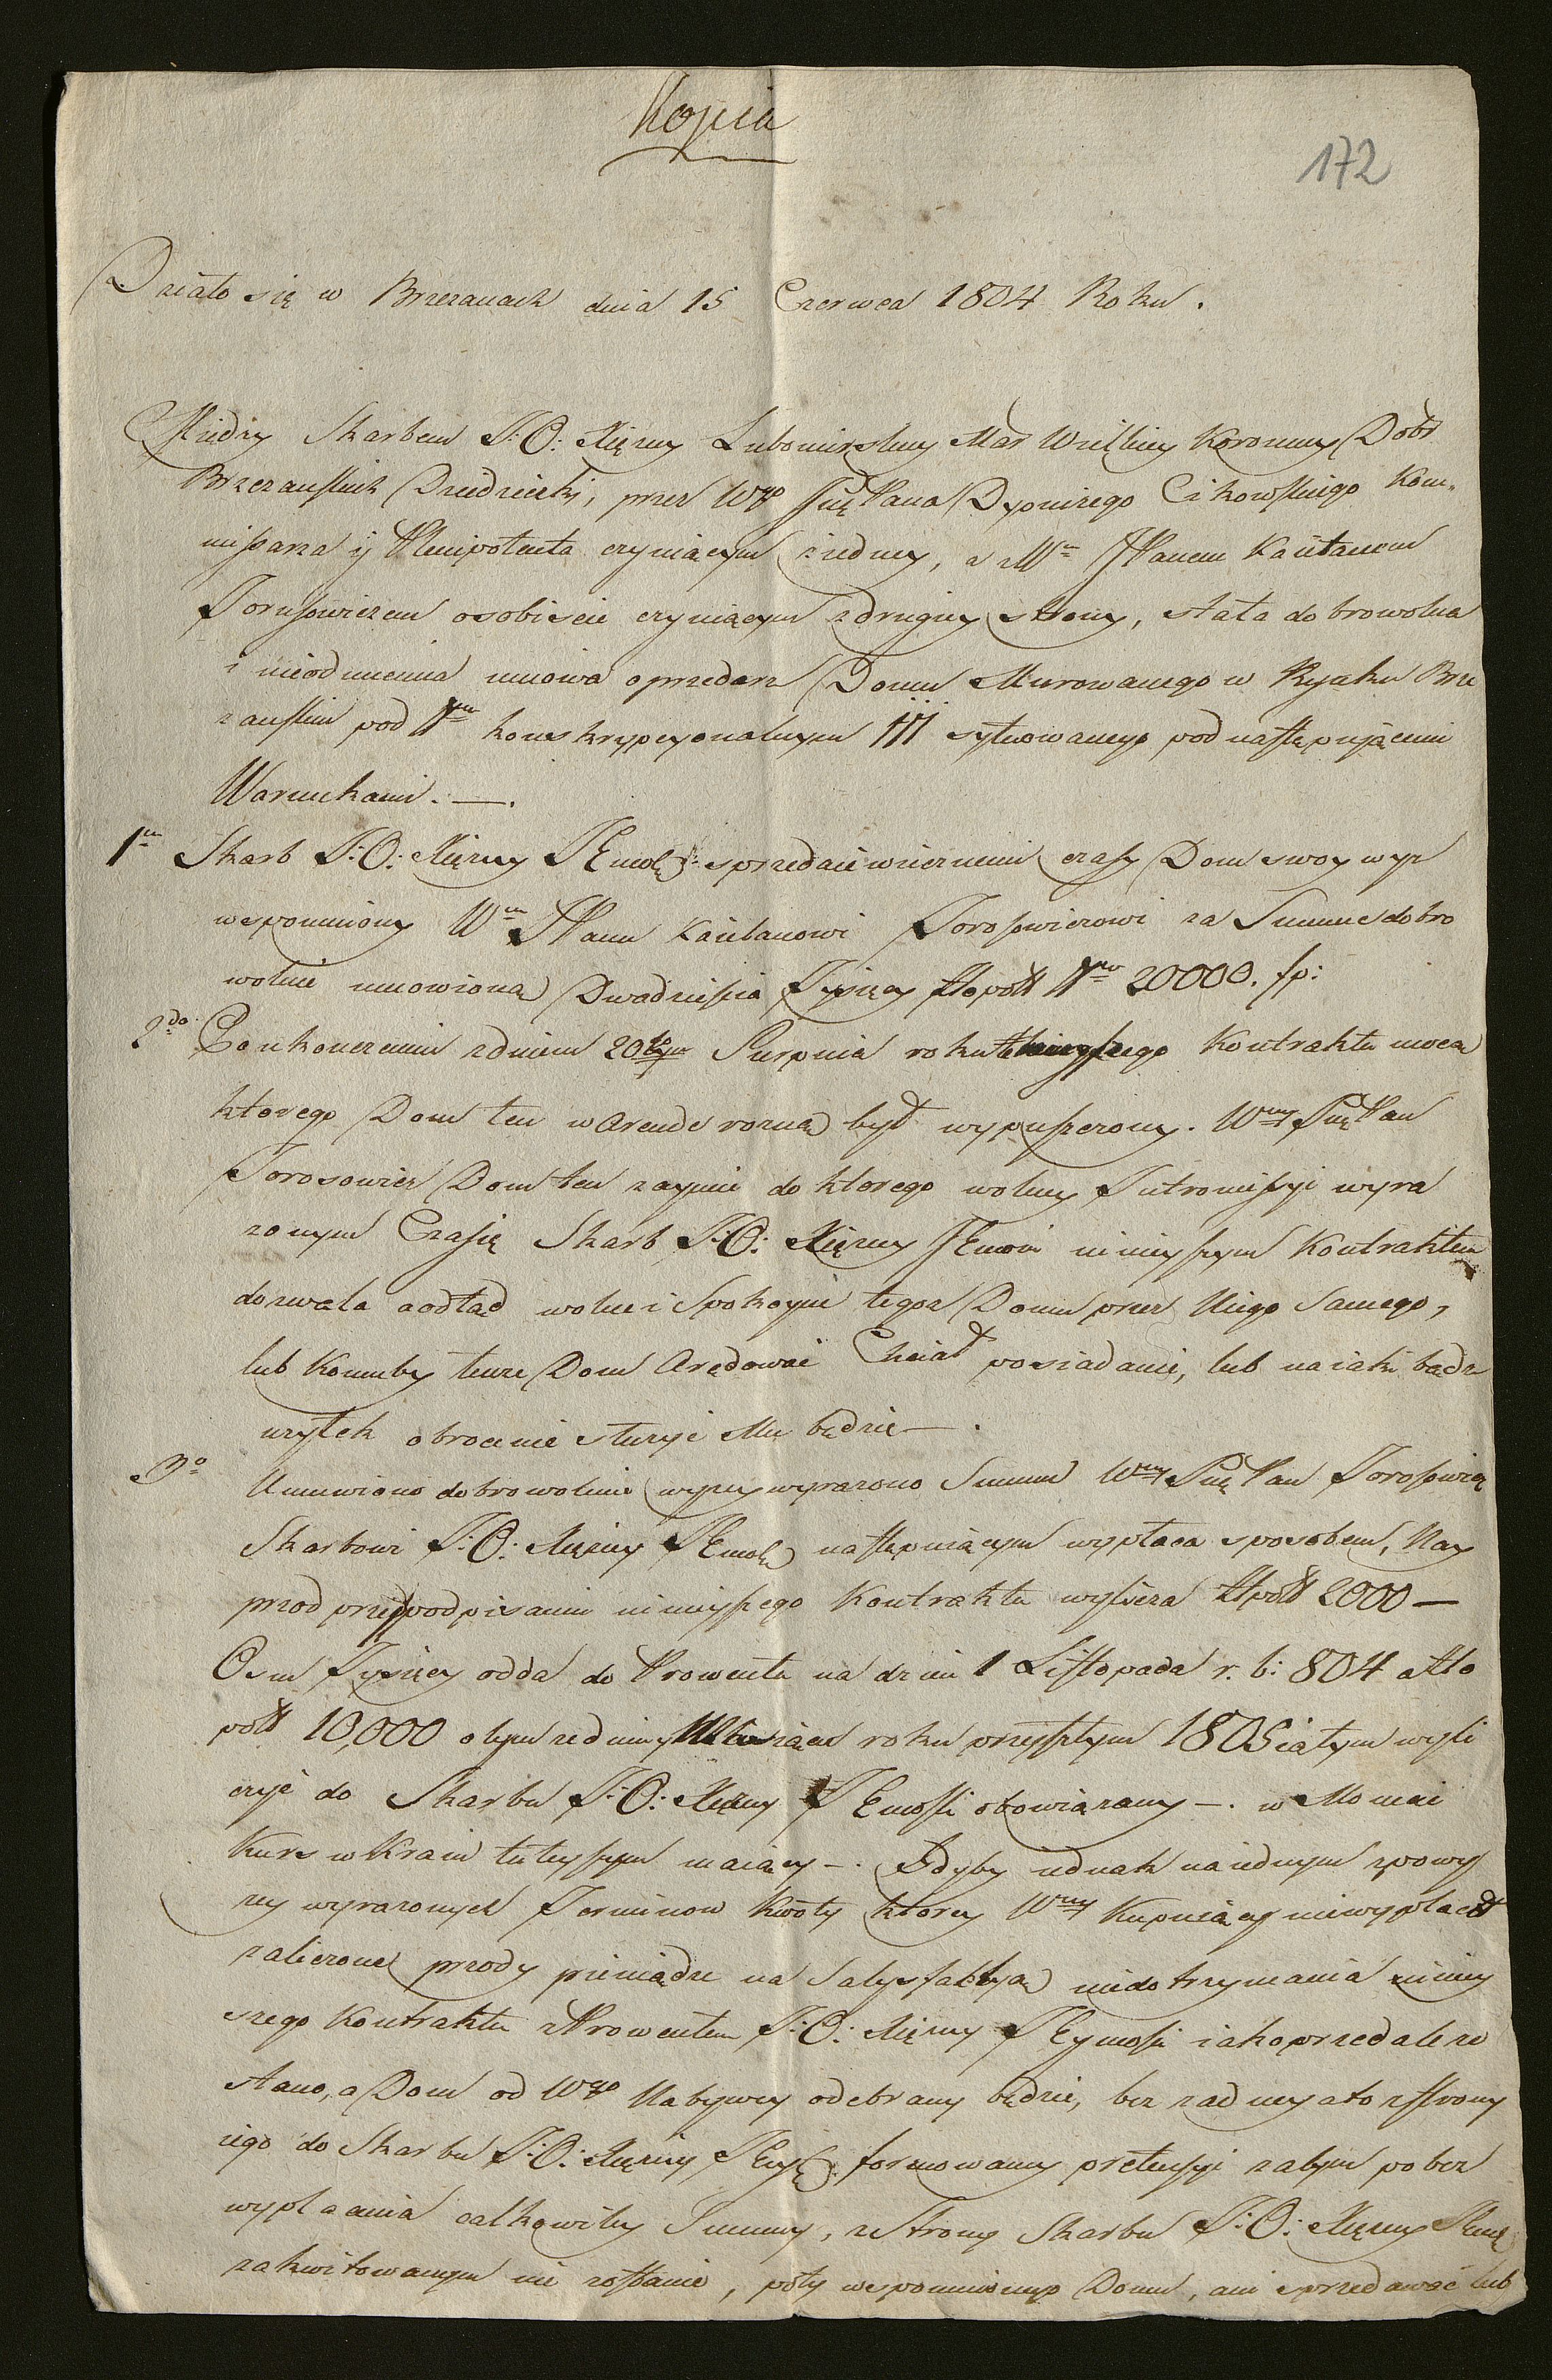 Kopia
172
Działo się w Brzezanach dnia 15 Czerwca 1804 Roku.
Między Skarbem J:O: Xiężny Lubomirskiey Mar Wielkiey Koronney Dobr
Brzezanskich Dziedziczki, przez Wgo Jmę Pana Dyonizego Cikowskiego Kom„
missarza y Plenipotenta czyniącym z iedney, a Wm JPanem Kaietanem
Torossowiczem osobiscie czyniącym z drugiey strony, stała dobrowolna
i nieodmienna umowa o przedarz Domu Murowanego w Rynku Brze
zanskim pod Nrm konskrypcyonalnym 111 sytuowanego pod następuiącemi
Warunkami. —.
1m Skarb J:O: Xiężny JEmołę: sprzedaie wiecznemi czasy Dom swoy wyż
wspomniony Wm JPanu Kaietanowi Torossowiczowi za Summe dobro
wolnie umowioną Dwadziescia Tysięcy złłpoll Nro 20000. fp:
2do Po ukonczeniu z dniem 20tym Sierpnia roku Kontraktu mocą
ktorego Dom ten w Arende roczną był wypuszczony. Wny Jmę Pan
Torosowicz Dom ten zaymie do ktorego wolney Intromissyi wyra
zonym Czasię Skarb J:O: Xiężny JEmoi ninieyszym Kontraktem
dozwala a odtąd wolne i Spokoyne tegoz Domu przez Niego Samego,
lub Komuby tenze Dom Arędować Chciał posiadanie, lub na iaki bądz
uzytek obrocenie słuzyć Mu będzie —.
3o Umowiono dobrowolnie wyzey wyrazono Summe Wny Jmę Pan Torossowicz
Skarbowi J:O: Xiężny JEmołę następuiącym wypłaca sposobem, Nay
przod przy podpisaniu ninieyszego Kontraktu wylicza złłpoll 2000 —
Osm Tysięcy odda do Prowentu na dzien 1 Listopada r. b: 804 a złło
poll 10,000 o tym ze dniu y Miesiącu roku przyszłym 1805iątym wyli
czyć do Skarbu J:O: Xiężny JEmosci obowiązany —. w Monecie
Kurs w Kraiu tuteyszym maiącey —. Gdyby iednak na iednym z powy
zey wyrazonych Terminow kwoty ktorey Wny Kupuiący niewypłacił
zaliczone przody pieniądze na Satysfakcyą niedotrzymania niniey
szego Kontraktu z Prowentem J:O: Xiężny JEymosci iako przedaleze
stano, a Dom od Wgo Nabywcy odebrany będzie, bez zadney a to z strony
iego do Skarbu J:O: Xiężny formowaney pretensyi zatym po bez
wypłacenia całkowitey Summy, z Strony Skarbu J:O: Xiężny
zakwitowanym nie zostanie, poty wspomnionego Domu, ani sprzedawać lub